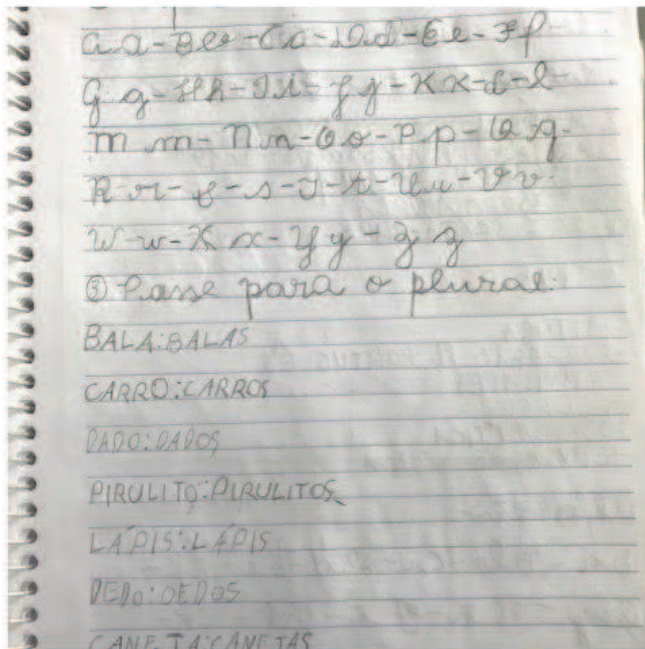 a a - B b - C c - D d - E e - F f
G g - H h - I i - J j - K k - L - l
M m - N n - O o - P p - Q q.
R r - S - s - T - t - U u - V v.
W - w - X x - Y y - Z z
③ Passe para o plural:
BALA: BALAS
CARRO: CARROS
DADO: DADOS
PIRULITO: PIRULITOS
LÁPIS: LÁPIS
DEDO: DEDOS
CANETA: CANETAS